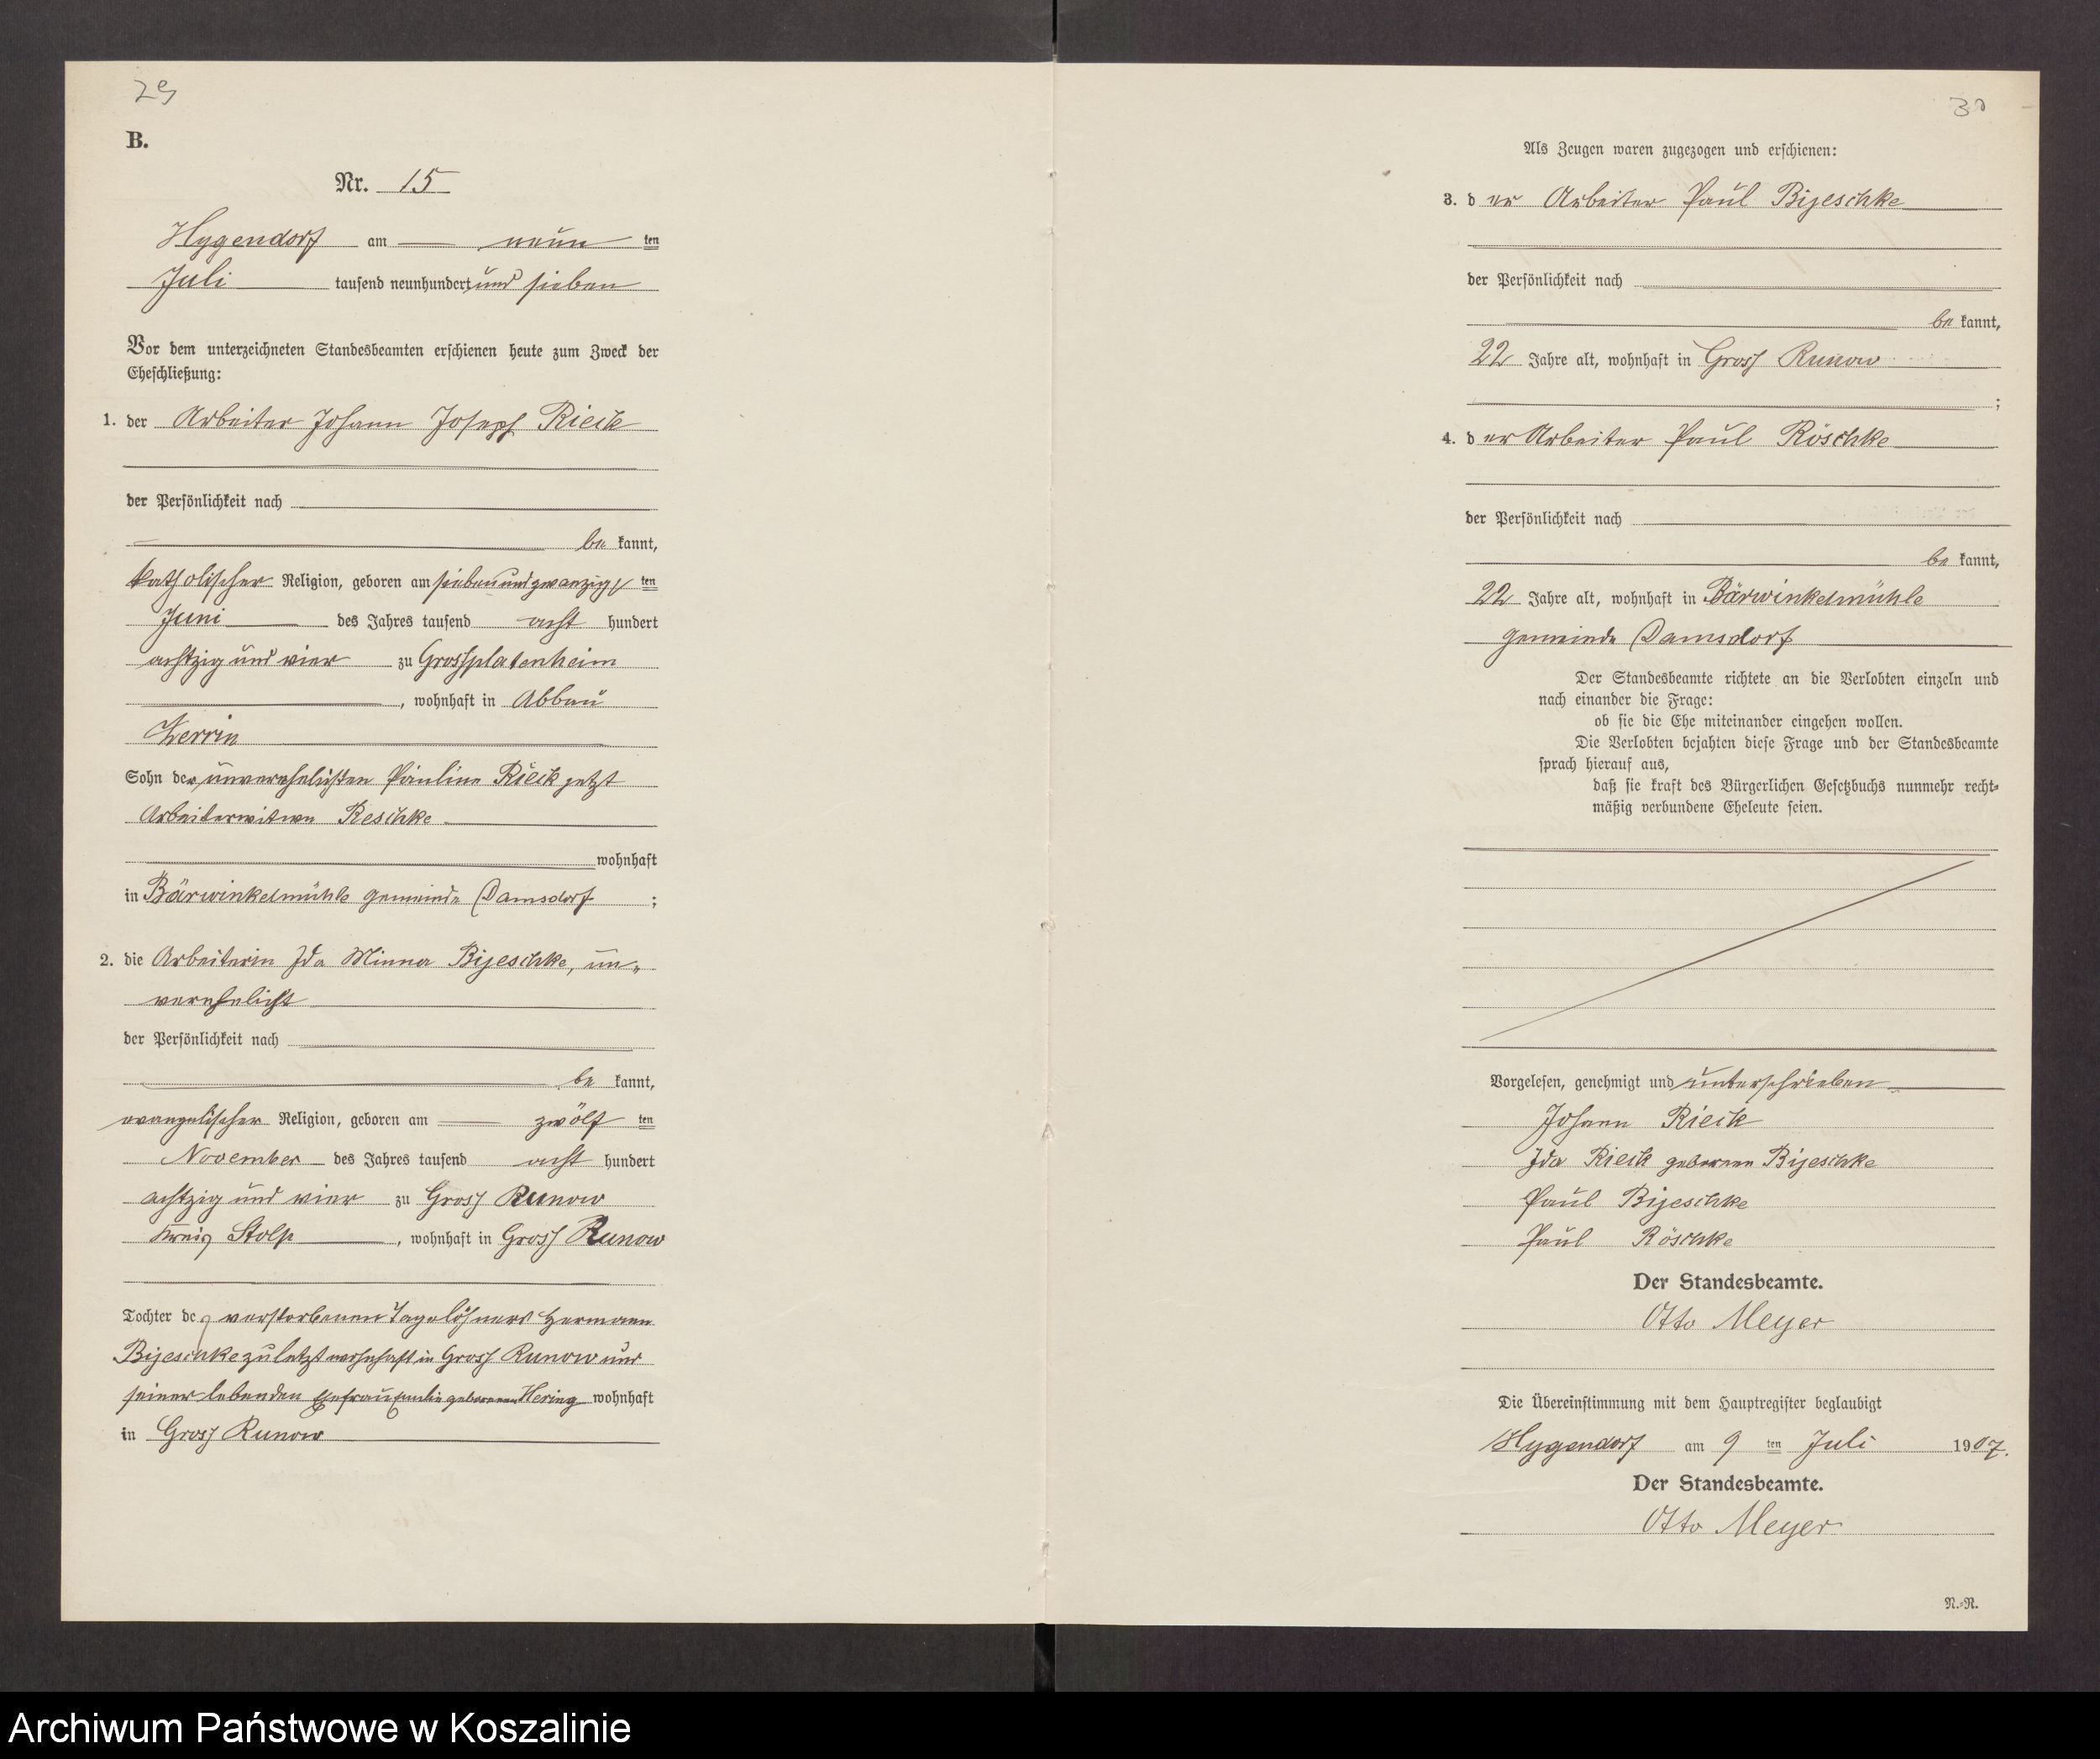 29
B.
Nr. 15
Hygendorf am neun ten
Juli tausend neunhundert und sieben
Vor dem unterzeichneten Standesbeamten erschienen heute zum Zweck der
Eheschließung:
1. der Arbeiter Johann Joseph Rieck
der Persönlichkeit nach
be kannt,
katholischer Religion, geboren am siebenundzwanzigs ten
Juni des Jahres tausend acht hundert
achtzig und vier zu Grossplatenheim
, wohnhaft in Abbau
Zerrin
Sohn der unverehelichten Pauline Rieck jetzt
Arbeiterwitwe Reschke
wohnhaft
in Bärwinkelmühle Gemeinde Damsdorf ;
2. die Arbeiterin Ida Minna Bijeschke, un-
verehelicht
der Persönlichkeit nach
be kannt,
evangelischer Religion, geboren am zwölf ten
November des Jahres tausend acht hundert
achtzig und vier zu Gross Runow
Kreis Stolp , wohnhaft in Gross Runow
Tochter des verstorbenen Tagelöhners Hermann
Bijeschke zuletzt wohnhaft in Gross Runow und
seiner lebenden Ehefrau Emilie geborenen Hering wohnhaft
in Gross Runow
30
Als Zeugen waren zugezogen und erschienen:
3. d er Arbeiter Paul Bijeschke
der Persönlichkeit nach
be kannt,
22 Jahre alt, wohnhaft in Gross Runow
;
4. d er Arbeiter Paul Röschke
der Persönlichkeit nach
be kannt,
22 Jahre alt, wohnhaft in Bärwinkelmühle
Gemeinde Damsdorf
Der Standesbeamte richtete an die Verlobten einzeln und
nach einander die Frage:
ob sie die Ehe miteinander eingehen wollen.
Die Verlobten bejahten diese Frage und der Standesbeamte
sprach hierauf aus,
daß sie kraft des Bürgerlichen Gesetzbuchs nunmehr recht-
mäßig verbundene Eheleute seien.
Vorgelesen, genehmigt und unterschrieben
Johann Rieck
Ida Rieck geborenen Bijeschke
Paul Bijeschke
Paul Röschke
Der Standesbeamte.
Otto Meyer
Die Übereinstimmung mit dem Hauptregister beglaubigt
Hygendorf am 9 ten Juli 1907.
Der Standesbeamte.
Otto Meyer
N.-R.
Archiwum Państwowe w Koszalinie